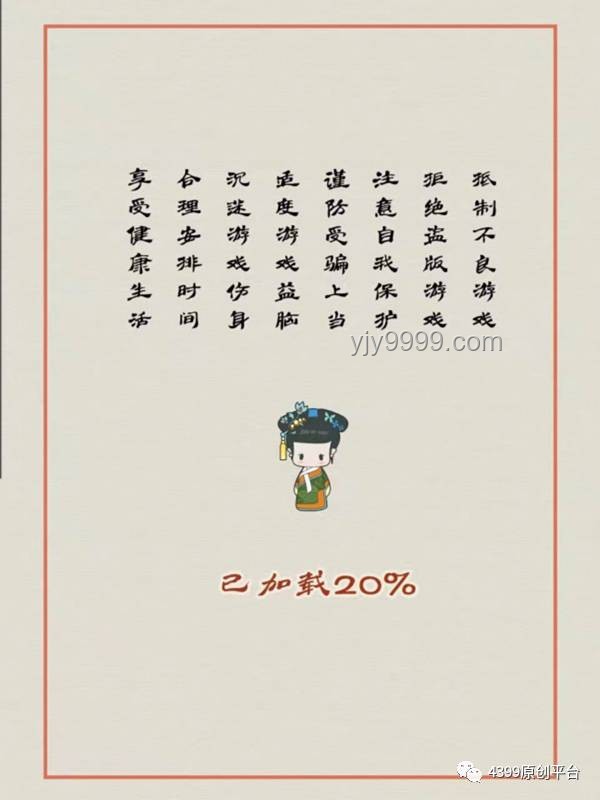 抵制不良游戏
拒绝盗版游戏
注意自我保护
谨防受骗上当
适度游戏益脑
沉迷游戏伤身
合理安排时间
享受健康生活
yjy9999.com
已加载20%
4399原创平台